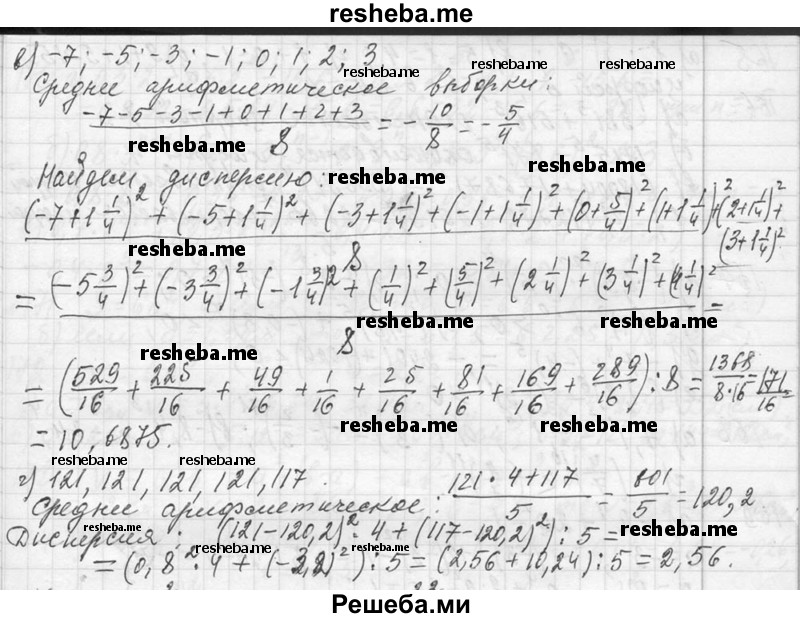 resheba.me
в) -7; -5; -3; -1; 0; 1; 2; 3
resheba.me resheba.me
Среднее арифметическое выборки:
(-7-5-3-1+0+1+2+3)/8 = -10/8 = -5/4
resheba.me resheba.me
Найдем дисперсию: resheba.me resheba.me
((-7+1 1/4)² + (-5+1 1/4)² + (-3+1 1/4)² + (-1+1 1/4)² + (0+5/4)² + (1+1 1/4)² + (2+1 1/4)² + (3+1 1/4)²)/8
resheba.me
= ((-5 3/4)² + (-3 3/4)² + (-1 3/4)² + (1/4)² + (5/4)² + (2 1/4)² + (3 1/4)² + (4 1/4)²)/8 =
resheba.me resheba.me
resheba.me
= (529/16 + 225/16 + 49/16 + 1/16 + 25/16 + 81/16 + 169/16 + 289/16) : 8 = 1368/(8·16) = 171/16 =
resheba.me resheba.me
= 10,6875.
resheba.me resheba.me
г) 121, 121, 121, 121, 117.
Среднее арифметическое: (121·4+117)/5 = 601/5 = 120,2
resheba.me
Дисперсия: ((121-120,2)²·4 + (117-120,2)²) : 5 =
resheba.me resheba.me
= (0,8²·4 + (-3,2)²) : 5 = (2,56+10,24) : 5 = 2,56.
resheba.me resheba.me
Решеба.ми